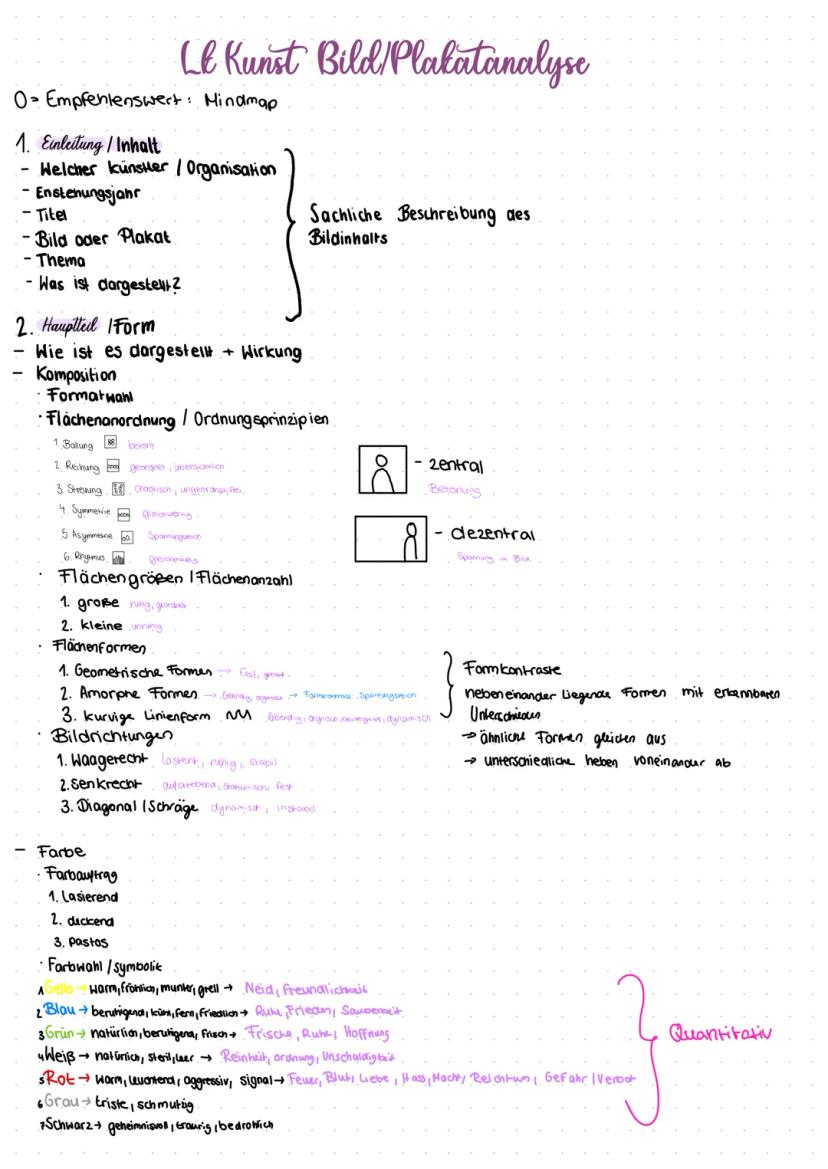 Lk Kunst Bild/Plakatanalyse
O = Empfehlenswert: Mindmap
1. Einleitung / Inhalt
- Welcher Künstler / Organisation
- Enstehungsjahr
- Titel
- Bild oder Plakat
- Thema
- Was ist dargestellt?
Sachliche Beschreibung des
Bildinhalts
2. Hauptteil / Form
- Wie ist es dargestellt + Wirkung
- Komposition
· Formatwahl
· Flächenanordnung / Ordnungsprinzipien
1. Ballung betont
2. Reihung geordnet, übersichtlich
3. Streuung chaotisch, ungeordnet, frei
4. Symmetrie gleichwertig
5. Asymmetrie Spannungsreich
6. Rhytmus gleichmäßig
- zentral
Betonung
- dezentral
Spannung im Bild
· Flächengrößen / Flächenanzahl
1. große ruhig, geordnet
2. kleine unruhig
· Flächenformen
1. Geometrische Formen → Fest,
2. Amorphe Formen → lebendig, organisch → Formkontrast: Spannungsreich
3. kurvige Linienform lebendig, organisch, bewegend, dynamisch
Formkontraste
nebeneinander liegende Formen mit erkennbaren
Unterschieden
→ ähnliche Formen gleichen aus
→ unterschiedliche heben voneinander ab
· Bildrichtungen
1. Waagerecht lastent, ruhig, stabil
2. Senkrecht aufstrebend, statuarisch, fest
3. Diagonal / Schräge dynamisch, instabil
- Farbe
· Farbauftrag
1. Lasierend
2. deckend
3. Pastos
· Farbwahl / symbolik
1 Gelb → warm, fröhlich, munter, grell → Neid, Freundlichkeit
2 Blau → beruhigend, kühl, fern, friedlich → Ruhe, Frieden, Sauberkeit
3 Grün → natürlich, beruhigend, frisch → Frische, Ruhe, Hoffnung
4 Weiß → natürlich, steril, leer → Reinheit, ordnung, Unschuldigkeit
5 Rot → warm, leuchtend, aggressiv, signal → Feuer, Blut, Liebe, Hass, Macht/ Reichtum, Gefahr / Verbot
6 Grau → triste, schmutzig
7 Schwarz → geheimnisvoll, traurig, bedrohlich
Quantitativ